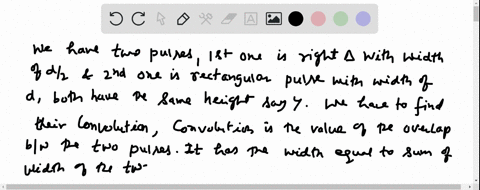 We have two pulses, 1st one is right Δ with width
of d/2 & 2nd one is rectangular pulse with width of
d, both have the same height say y. We have to find
their Convolution, Convolution is the value of the overlap
b/w the two pulses. It has the width equal to sum of
width of the tw